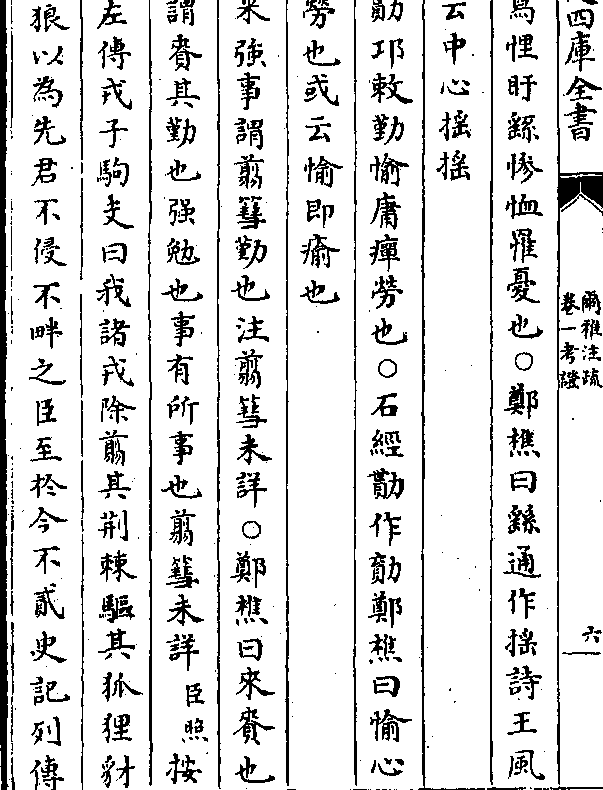 四庫全書
爾雅注疏
卷一考證
六
寫悝盱繇慘恤罹憂也○鄭樵曰繇通作揺詩王風
云中心揺揺
勩卭敕勤愉庸癉勞也○石經勩作勩鄭樵曰愉心
勞也或云愉即瘉也
来強事謂翦篲勤也注翦篲未詳○鄭樵曰來賚也
謂賚其勤也强勉也事有所事也翦篲未詳臣照按
左傳戎子駒支曰我諸戎除翦其荆棘驅其狐狸豺
狼以為先君不侵不畔之臣至於今不貳史記列傳